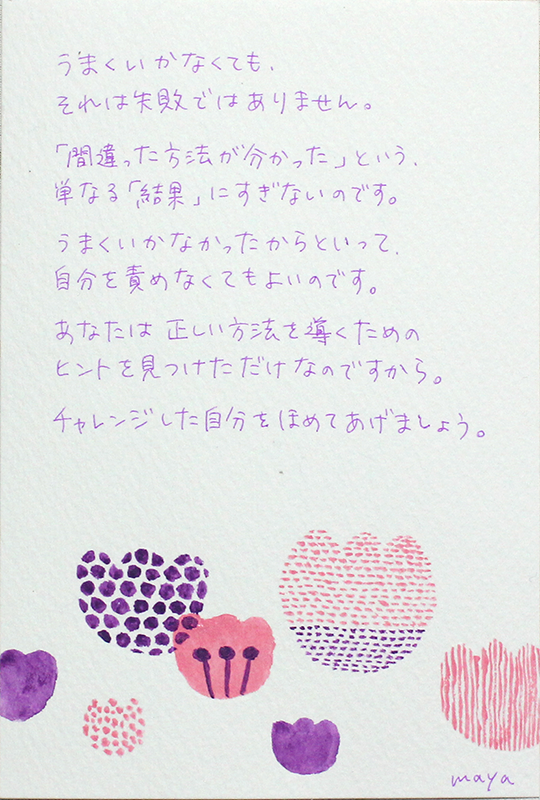 うまくいかなくても、
それは失敗ではありません。
「間違った方法が分かった」という、
単なる「結果」にすぎないのです。
うまくいかなかったからといって、
自分を責めなくてもよいのです。
あなたは正しい方法を導くための
ヒントを見つけただけなのですから。
チャレンジした自分をほめてあげましょう。
maya